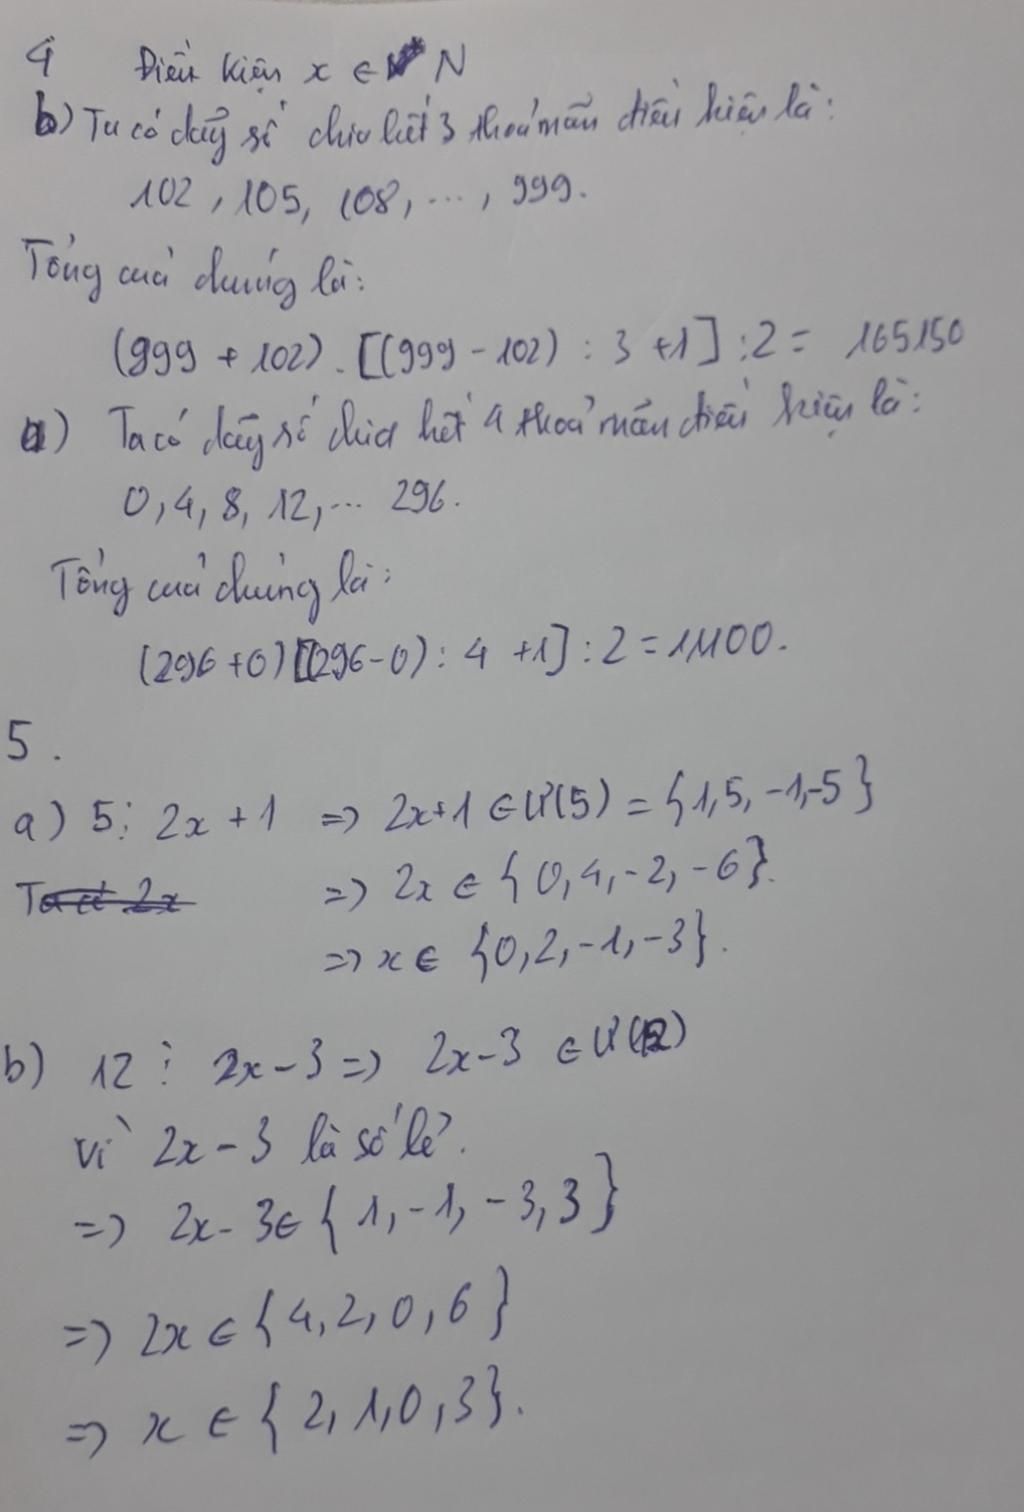 4 Điều kiện x ∈ N
b) Ta có dãy số chia hết 3 thoả mãn điều kiện là:
102, 105, 108, ..., 999.
Tổng của chúng là:
(999 + 102) . [(999 - 102) : 3 + 1] : 2 = 165150
a) Ta có dãy số chia hết 4 thoả mãn điều kiện là:
0, 4, 8, 12, ... 296.
Tổng của chúng là:
(296 + 0) [(296 - 0) : 4 + 1] : 2 = 11100.
5.
a) 5 ⋮ 2x + 1 => 2x+1 ∈ Ư(5) = {1, 5, -1, -5}
=> 2x ∈ {0, 4, -2, -6}.
=> x ∈ {0, 2, -1, -3}.
b) 12 ⋮ 2x - 3 => 2x - 3 ∈ Ư(12)
Vì 2x - 3 là số lẻ.
=> 2x - 3 ∈ {1, -1, -3, 3}
=> 2x ∈ {4, 2, 0, 6}
=> x ∈ {2, 1, 0, 3}.